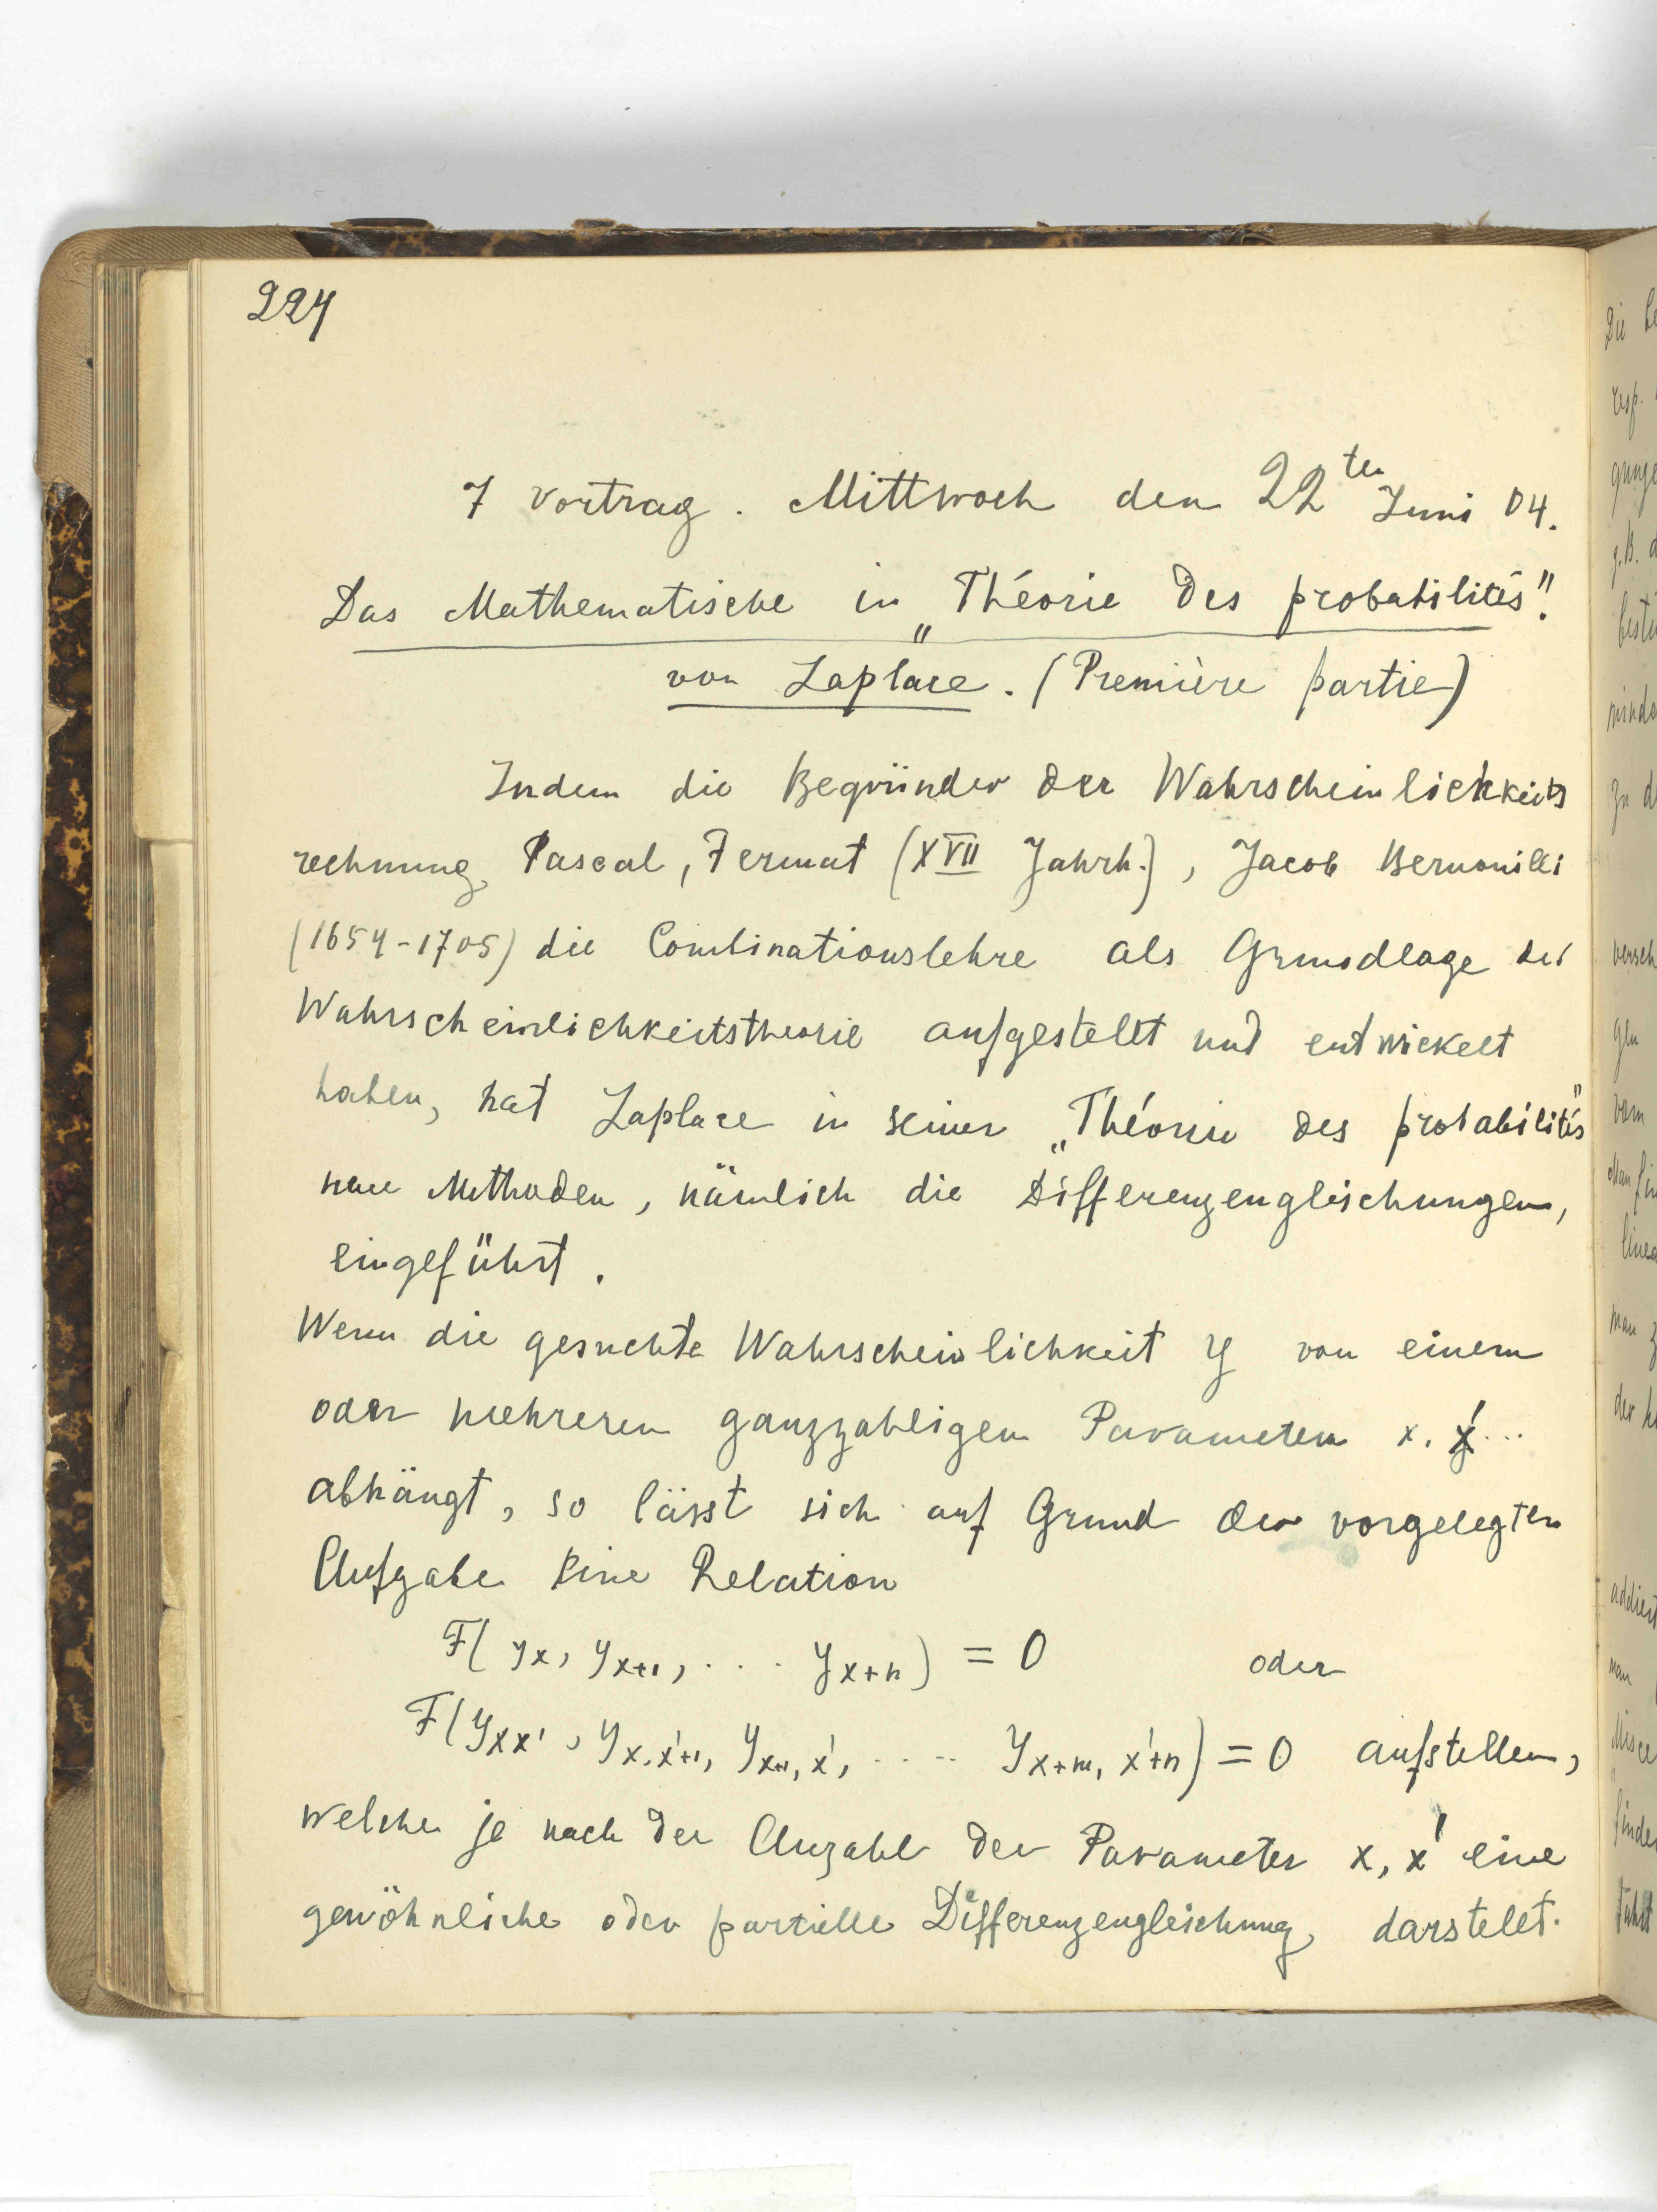 224
7 Vortrag. Mittwoch den 22ten Juni 04.
Das Mathematische in „Théorie des probabilités".
von Laplace. (Première partie)
Indem die Begründer der Wahrscheinlichkeits
rechnung, Pascal, Fermat (XVII Jahrh.), Jacob Bernouilli
(1654-1705) die Combinationslehre als Grundlage der
Wahrscheinlichkeitstheorie aufgestellt und entwickelt
haben, hat Laplace in seiner „Théorie des probabilités"
neue Methoden, nämlich die Differenzengleichungen,
eingeführt.
Wenn die gesuchte Wahrscheinlichkeit y von einem
oder mehreren ganzzahligen Parametern x, x'...
abhängt, so lässt sich auf Grund der vorgelegten
Aufgabe eine Relation
F(y_x, y_{x+1}, .... y_{x+n}) = 0 oder
F(y_{xx'}, y_{x,x'+1}, y_{x+1,x'}, ..... y_{x+m, x'+n}) = 0 aufstellen,
welche je nach der Anzahl der Parameter x, x' eine
gewöhnliche oder partielle Differenzengleichung darstellt.